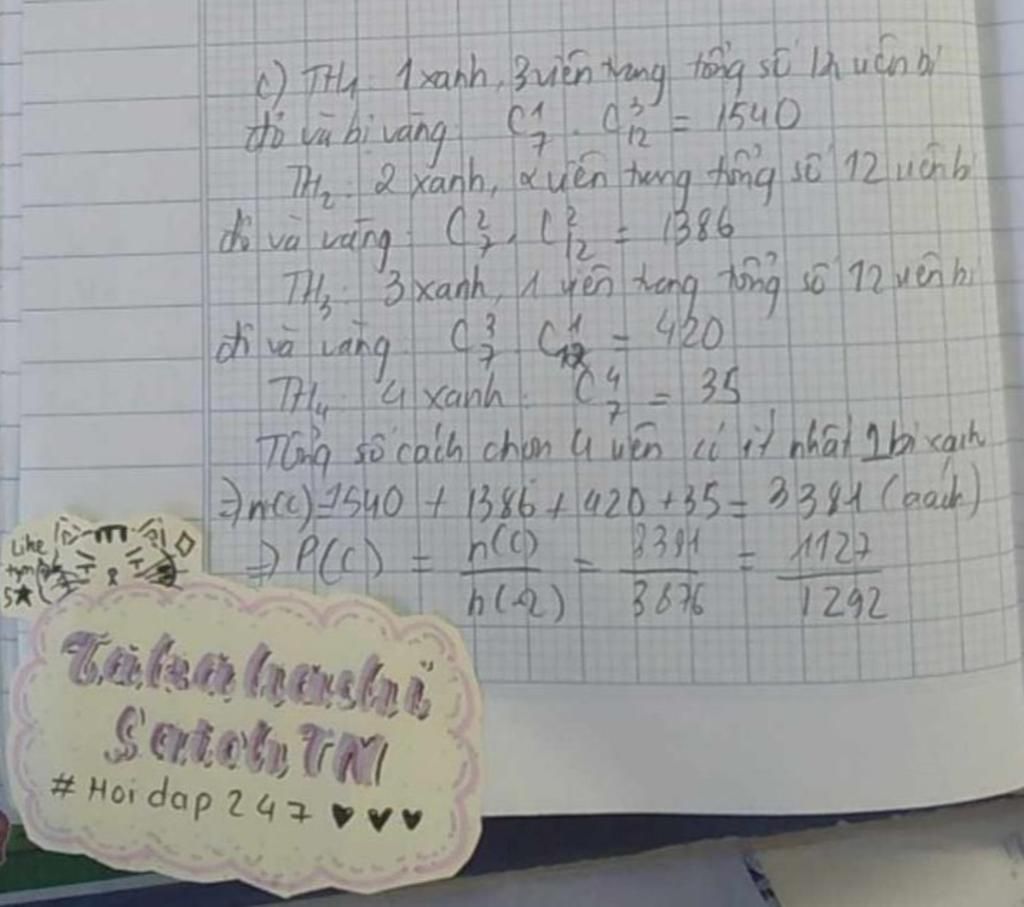 c) TH1: 1 xanh, 3 viên trong tổng số 12 viên bi
đỏ và bi vàng C 1 7 . C 3 12 = 1540
TH2: 2 xanh, 2 viên trong tổng số 12 viên bi
đỏ và vàng: C 2 7 . C 2 12 = 1386
TH3: 3 xanh, 1 viên trong tổng số 12 viên bi
đỏ và vàng C 3 7 C 1 12 = 420
TH4: 4 xanh: C 4 7 = 35
Tổng số cách chọn 4 viên có ít nhất 1 bi xanh
⇒ n(C) = 1540 + 1386 + 420 + 35 = 3381 (cách)
⇒ P(C) = n(C) / n(Ω) = 3381 / 3876 = 1127 / 1292
Like
tym
5★
Takahashi
Satoh, TM
# Hoi dap 247 ♥♥♥